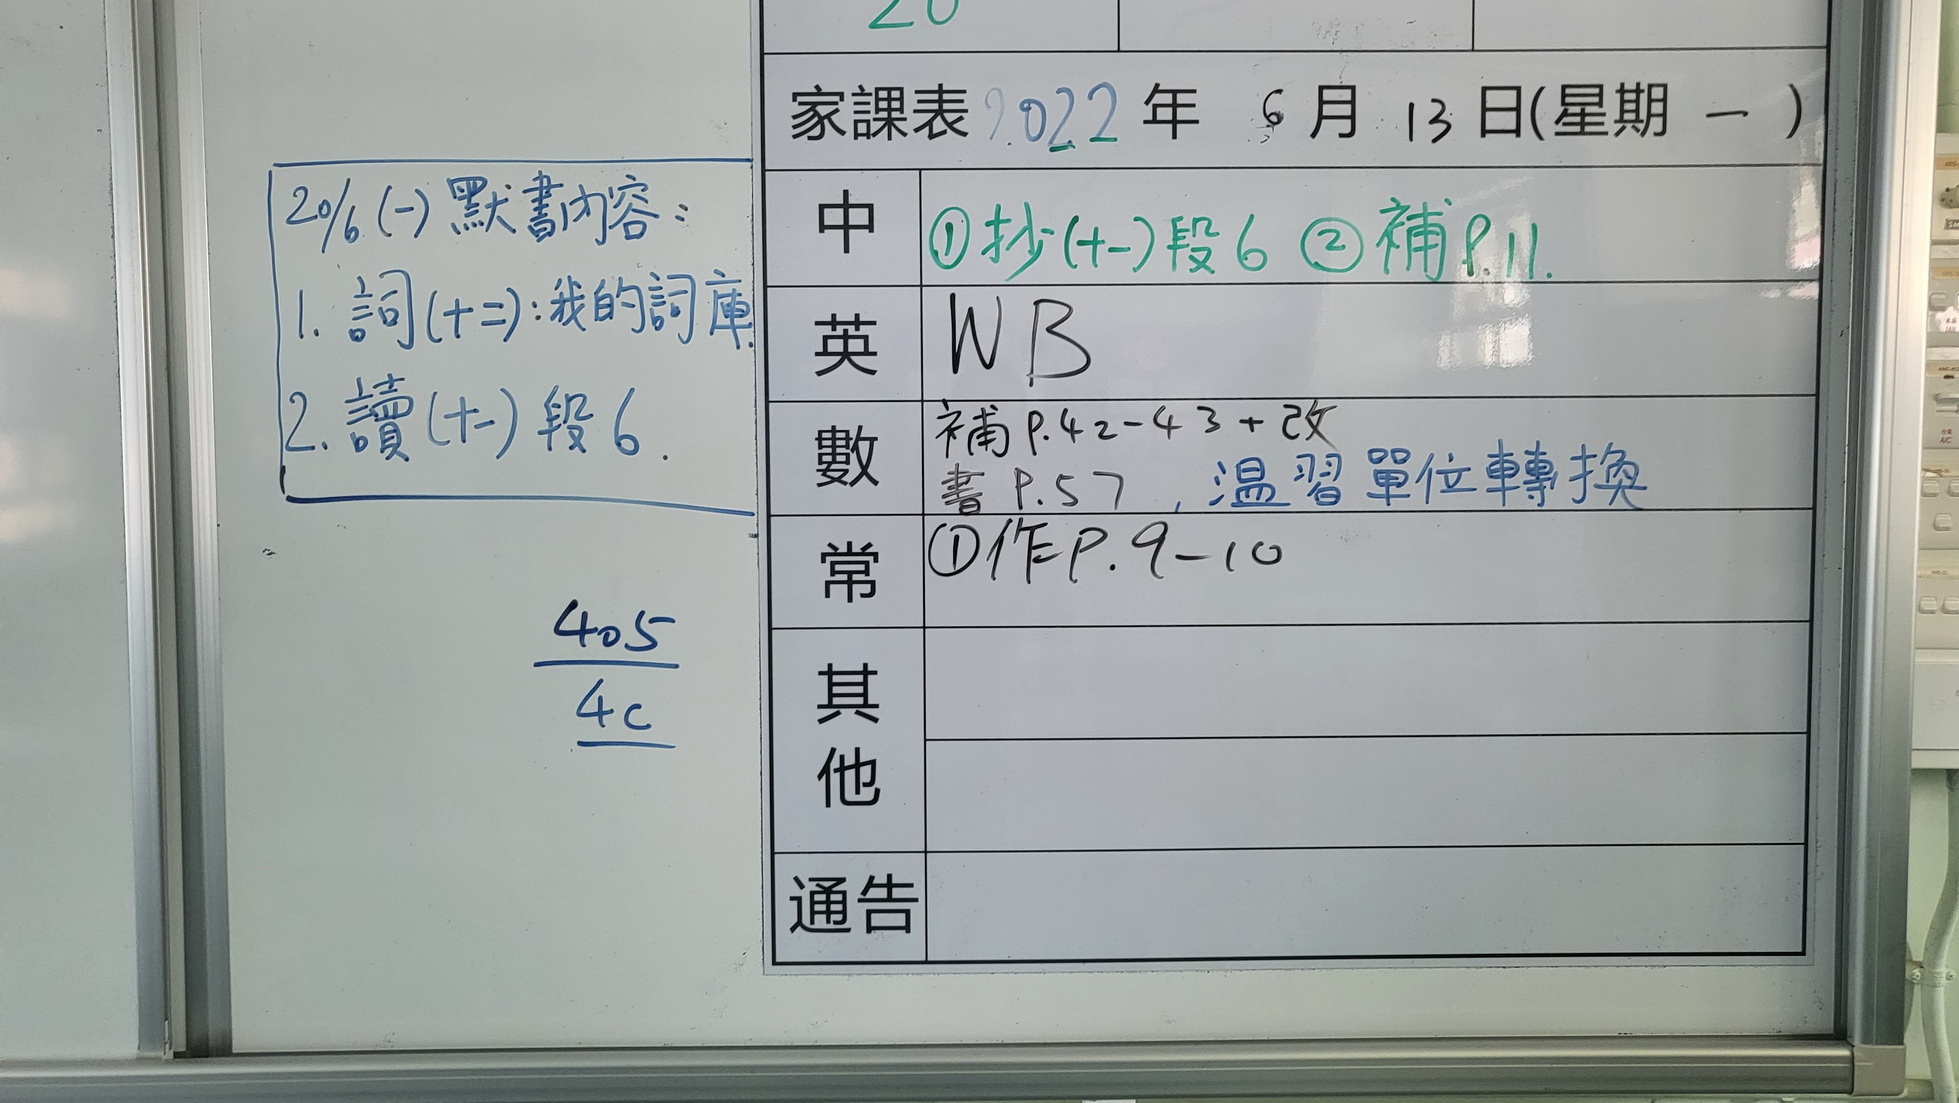 20
家課表 2022 年 6 月 13 日(星期 一 )
中 ①抄(十一)段6 ②補P.11.
英 WB
數 補P.42-43+改
書P.57 , 温習單位轉換
常 ①作P.9-10
其他
通告
20/6(一)默書內容:
1. 詞(十二):我的詞庫.
2. 讀(十一)段6.
405
4c